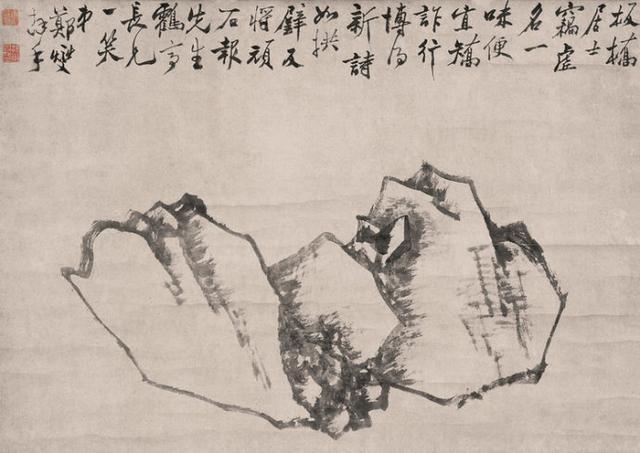 板橋
居士
竊虛
名一
味便
宜矯
詐行
博得
新詩
如拱
璧反
將頑
石報
先生
鶴亭
長兄
一笑
弟
鄭燮